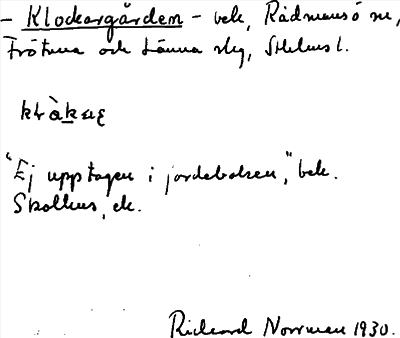 – Klockargården – bek, Rådmansö sn,
Frötuna och Länna slg, Sthlms l.
"Ej upptagen i jordeboken", bek.
Skolhus, ek.
Rickard Norrman 1930.